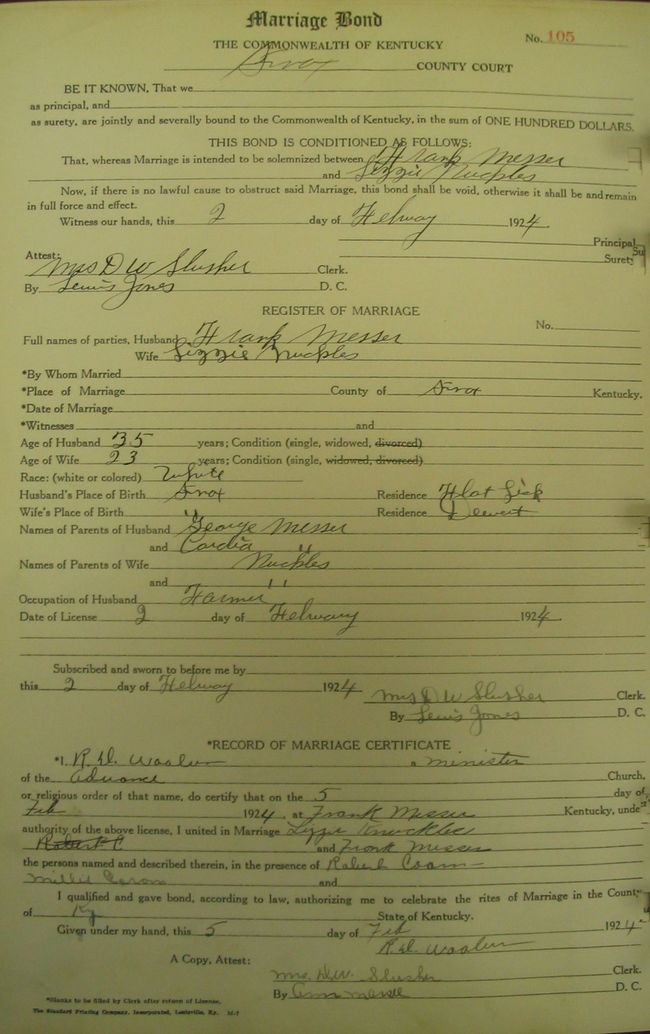 Marriage Bond
No. 105
THE COMMONWEALTH OF KENTUCKY
Knox COUNTY COURT
BE IT KNOWN, That we
as principal, and
as surety, are jointly and severally bound to the Commonwealth of Kentucky, in the sum of ONE HUNDRED DOLLARS.
THIS BOND IS CONDITIONED AS FOLLOWS:
That, whereas Marriage is intended to be solemnized between Frank Messer
and Lizzie Nuckles
Now, if there is no lawful cause to obstruct said Marriage, this bond shall be void, otherwise it shall be and remain
in full force and effect.
Witness our hands, this 2 day of Febuary 1924
Principal
Surety
Attest:
Mrs D W Slusher Clerk.
By Lewis Jones D. C.
REGISTER OF MARRIAGE
No.
Full names of parties, Husband Frank Messer
Wife Lizzie Nuckles
*By Whom Married
*Place of Marriage County of Knox Kentucky.
*Date of Marriage
*Witnesses and
Age of Husband 35 years; Condition (single, widowed, divorced)
Age of Wife 23 years; Condition (single, widowed, divorced)
Race: (white or colored) White
Husband's Place of Birth Knox Residence Flat Lick
Wife's Place of Birth " Residence Dewert
Names of Parents of Husband George Messer
and Cordia "
Names of Parents of Wife Nuckles
and "
Occupation of Husband Farmer
Date of License 2 day of Febuary 1924
Subscribed and sworn to before me by
this 2 day of Febuary 1924 Mrs D W Slusher Clerk.
By Lewis Jones D. C.
*RECORD OF MARRIAGE CERTIFICATE
*I, R. D. a minister
of the Advance Church,
or religious order of that name, do certify that on the 5 day of
Feb 1924, at Frank Messer Kentucky, unde
authority of the above license, I united in Marriage Lizzie Knuckles
Robert C and Frank Messer
the persons named and described therein, in the presence of Robert
Millie and
I qualified and gave bond, according to law, authorizing me to celebrate the rites of Marriage in the County
of Ky State of Kentucky.
Given under my hand, this 5 day of Feb 1924
R. D.
A Copy, Attest:
Mrs. D. W. Slusher Clerk.
By Ann D. C.
*Blanks to be filled by Clerk after return of License.
The Standard Printing Company, Incorporated, Louisville, Ky.